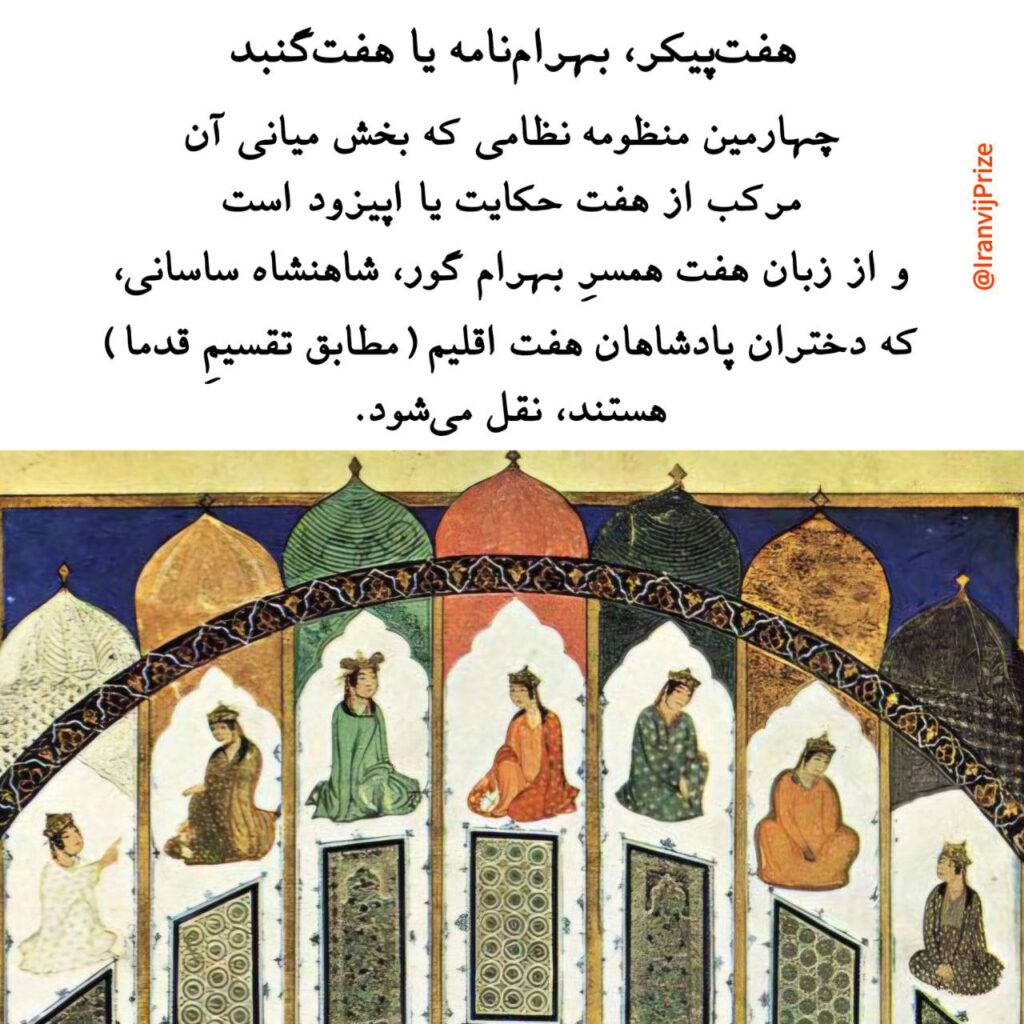 هفت‌پیکر، بهرام‌نامه یا هفت‌گنبد
چهارمین منظومه نظامی که بخش میانی آن
مرکب از هفت حکایت یا اپیزود است
و از زبان هفت همسرِ بهرام گور، شاهنشاه ساسانی،
که دختران پادشاهان هفت اقلیم (مطابق تقسیمِ قدما)
هستند، نقل می‌شود.
@IranvijPrize